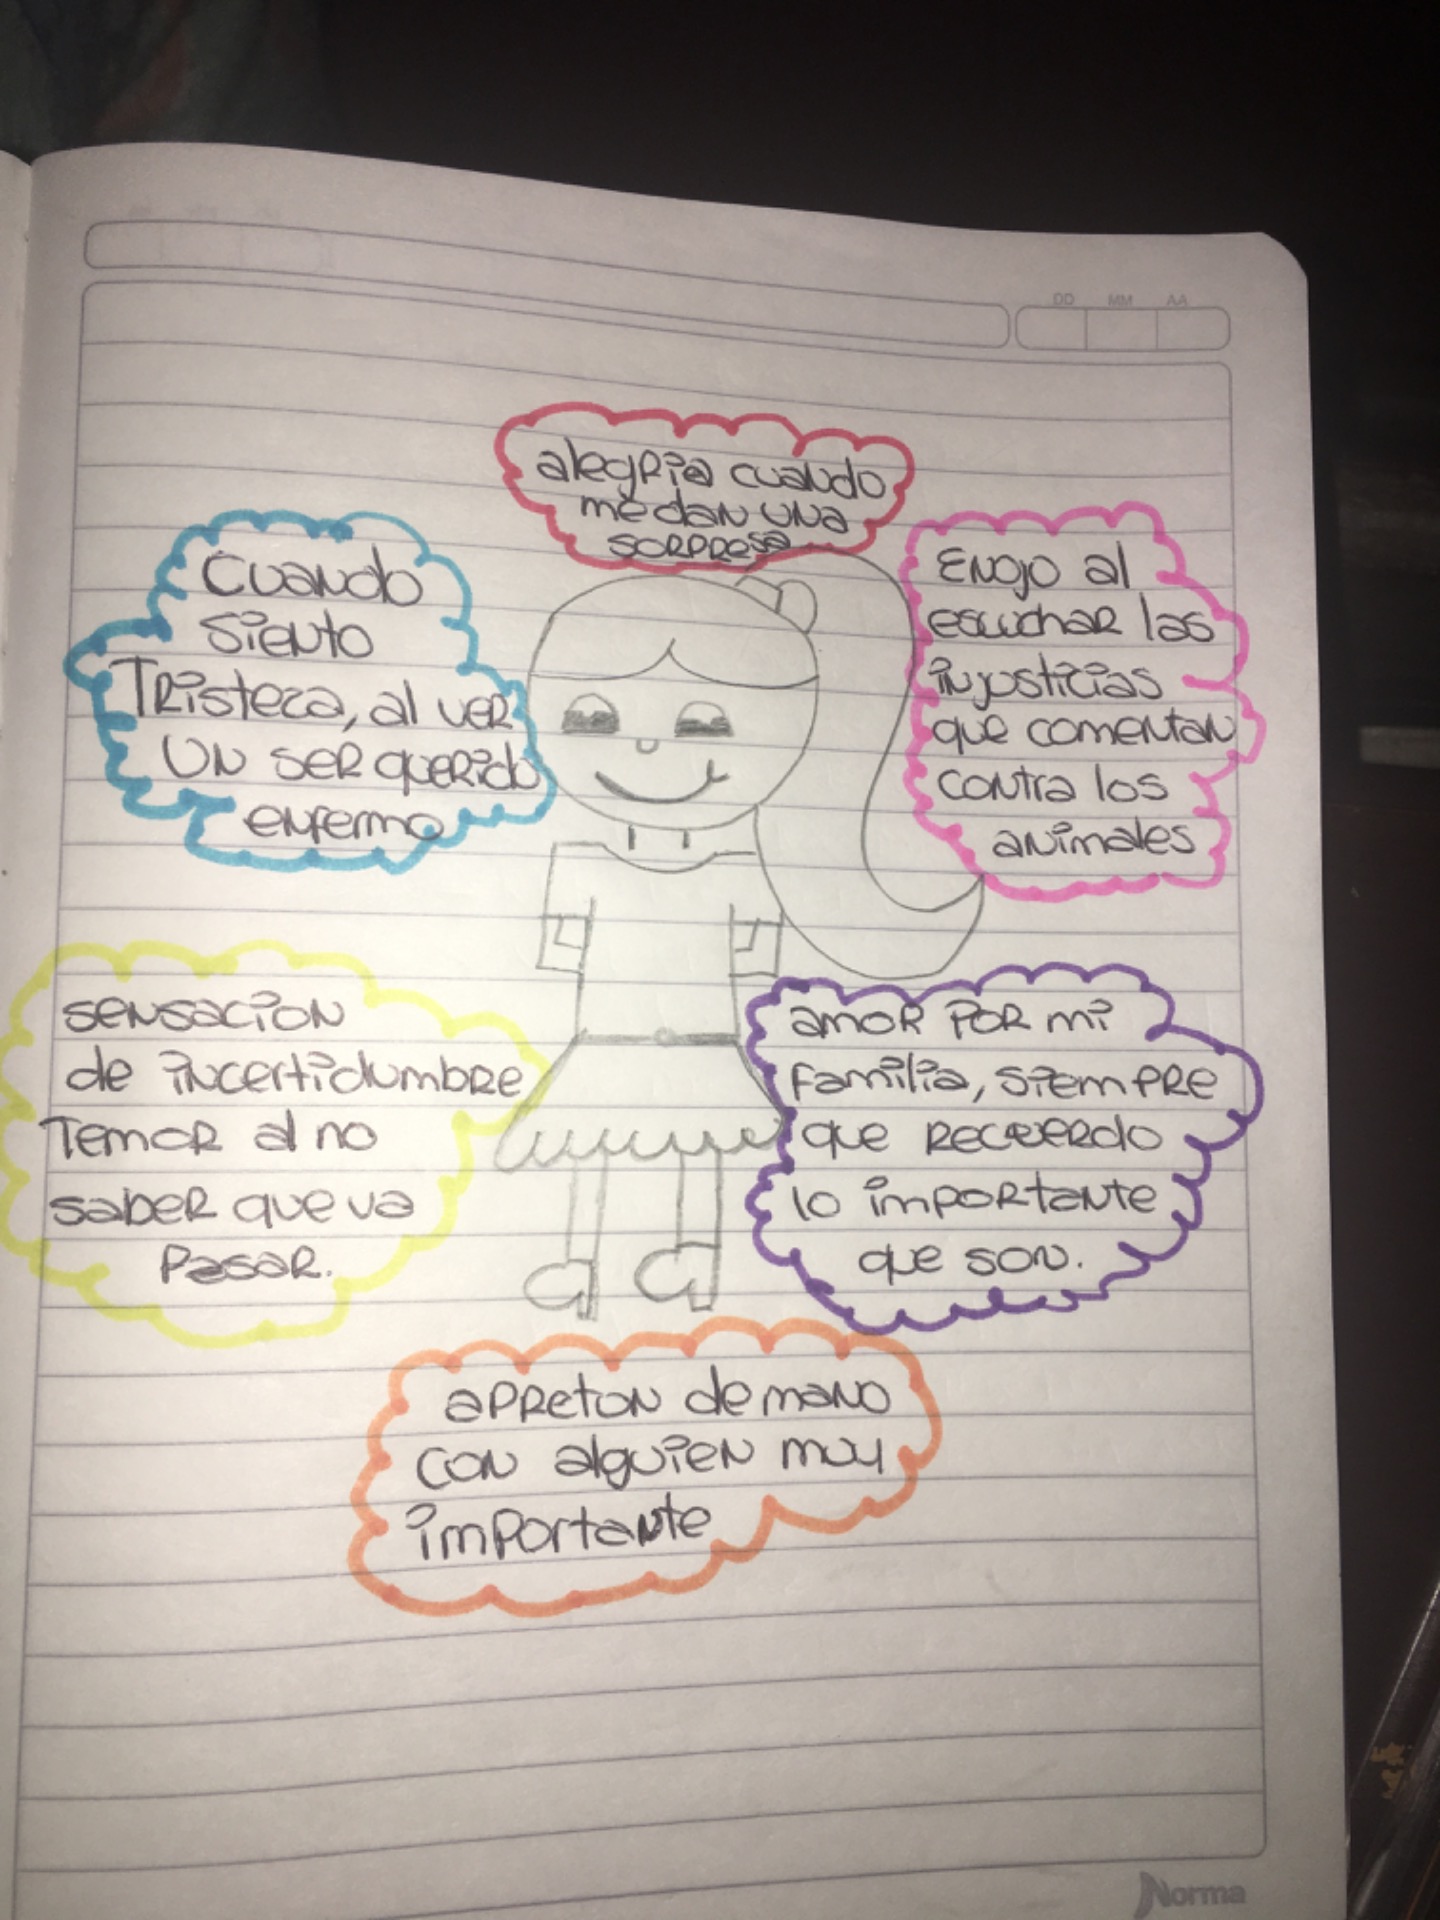 DD MM AA
alegria cuando
me dan una
sorpresa
Cuando
siento
Tristeza, al ver
un ser querido
enfermo
Enojo al
escuchar las
injusticias
que comentan
contra los
animales
sensacion
de incertidumbre
Temor al no
saber que va
pasar.
amor por mi
familia, siempre
que recuerdo
lo importante
que son.
apreton de mano
con alguien muy
importante
Norma